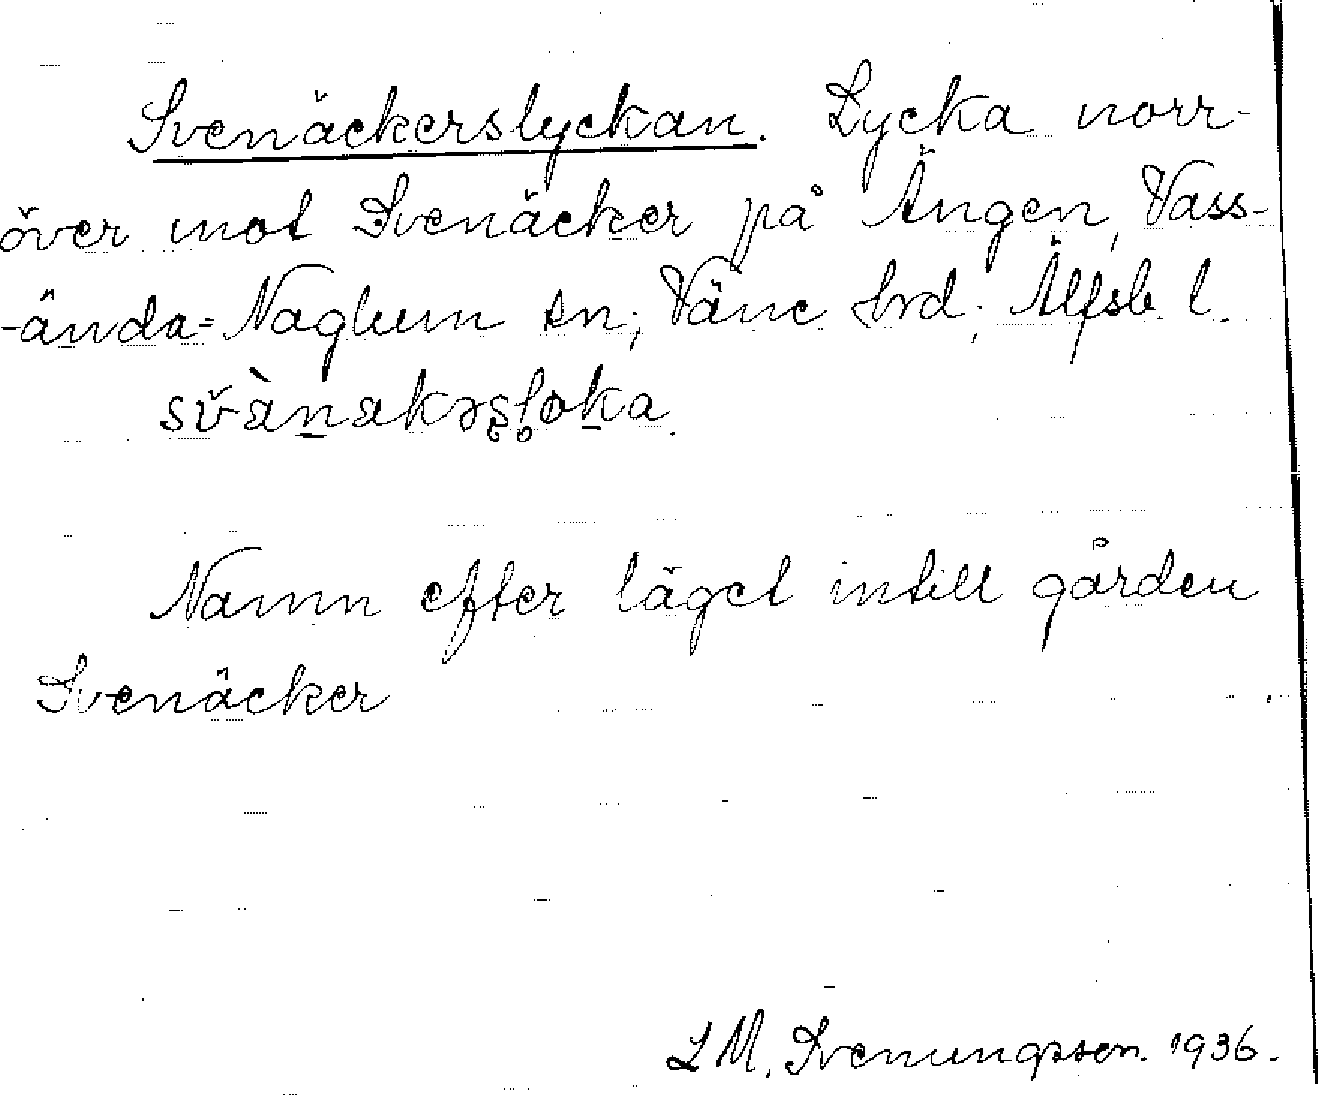 Svenäckerslyckan. Lycka norr-
över mot Svenäcker på Ängen, Vass-
-ända-Naglum sn; Väne hrd; Älfsb l.
Namn efter läget intill gården
Svenäcker
L M. Svenungsson. 1936.